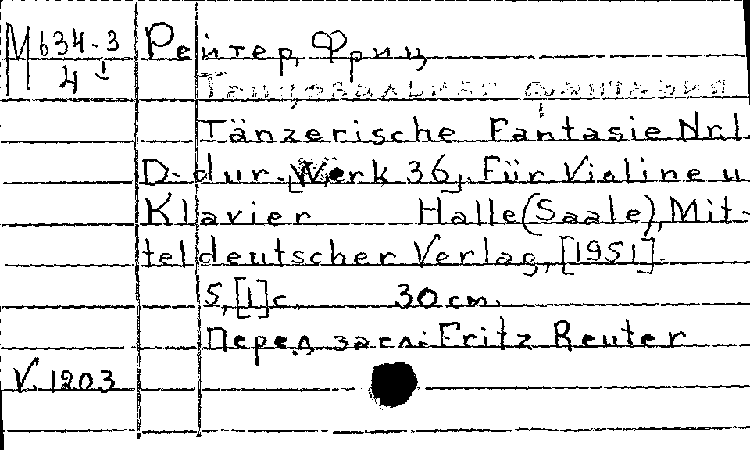 М634-3 Рейтер, Фриц
4 Танцовальная фантазия
Tänzerische Fantasie Nr.1
D-dur. [Werk 36]. Für Violine u
Klavier Halle (Saale), Mit-
teldeutscher Verlag, [1951].
5, [1] с 30 см.
Перед загл: Fritz Reuter
V. 1203